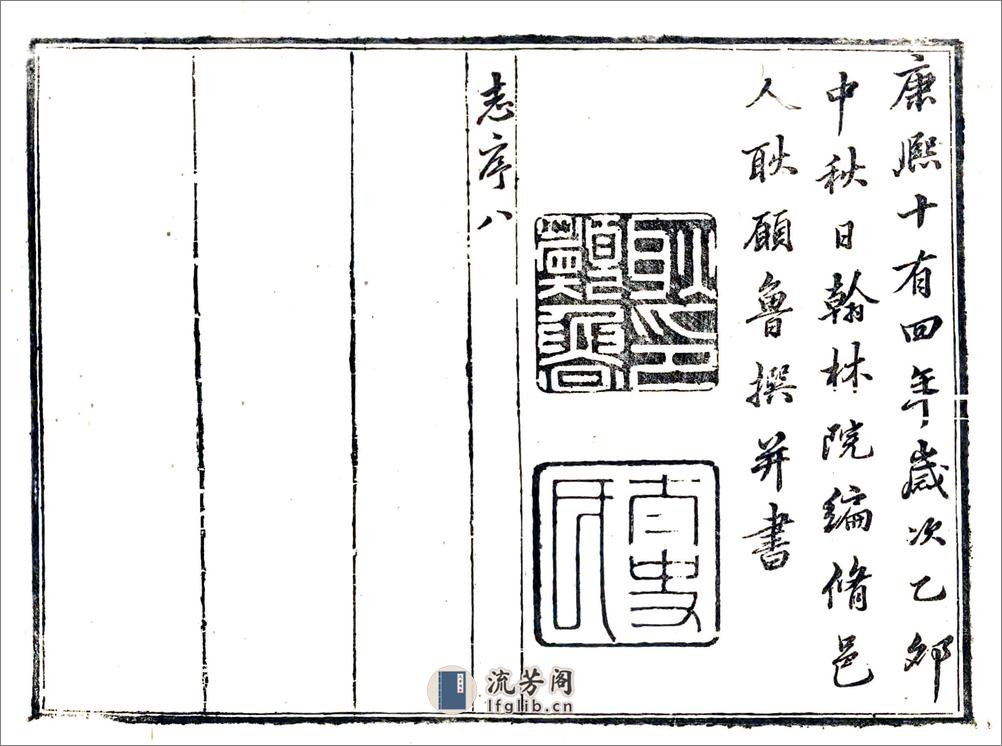 康熙十有四年歲次乙卯
中秋日翰林院編脩邑
人耿願魯撰并書
耿印
願魯
太史
氏
志序八
流芳阁
lfglib.cn